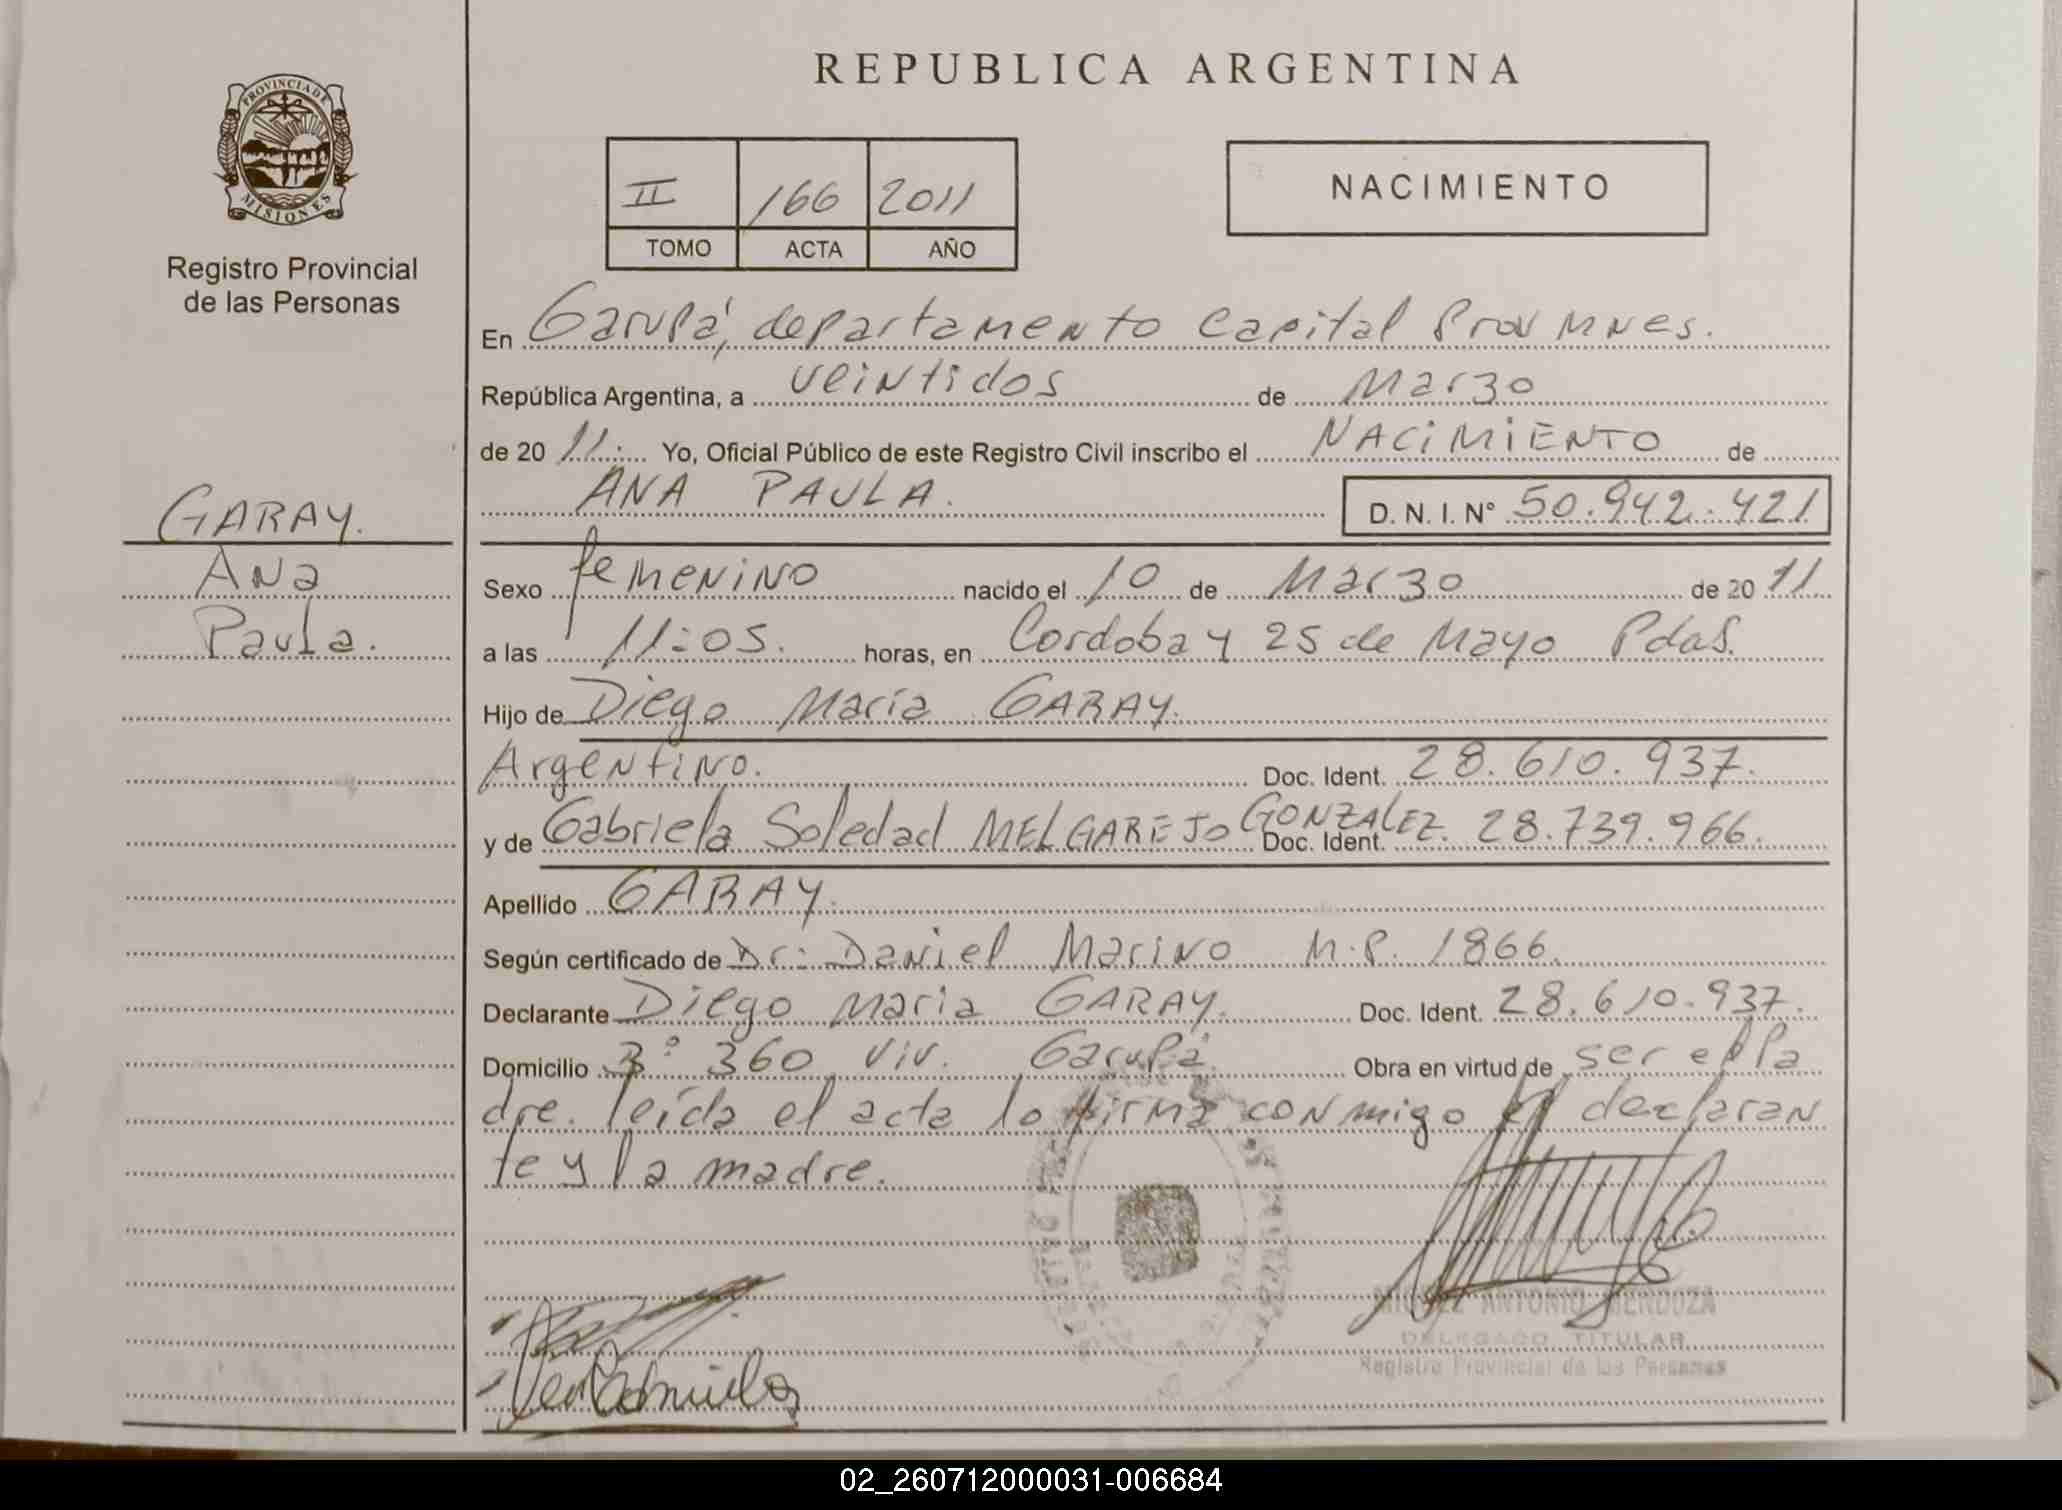 REPUBLICA ARGENTINA
PROVINCIA DE
MISIONES
Registro Provincial
de las Personas
II 166 2011
TOMO ACTA AÑO
NACIMIENTO
En Garupá, departamento Capital Prov Mnes.
República Argentina, a veintidos de Marzo
de 20 11. Yo, Oficial Público de este Registro Civil inscribo el NACIMIENTO de
ANA PAULA. D. N. I. N° 50.942.421
GARAY.
Ana
Paula.
Sexo femenino nacido el 10 de Marzo de 20 11
a las 11:05. horas, en Cordoba y 25 de Mayo Pdas.
Hijo de Diego Maria GARAY.
Argentino. Doc. Ident. 28.610.937.
y de Gabriela Soledad MELGAREJO GONZALEZ Doc. Ident. 28.739.966.
Apellido GARAY.
Según certificado de Dr: Daniel Marino M.P. 1866.
Declarante Diego Maria GARAY. Doc. Ident. 28.610.937.
Domicilio B° 360 viv. Garupá. Obra en virtud de ser el Pa
dre. leída el acta lo firma conmigo el declaran
te y la madre.
MIGUEL ANTONIO MENDOZA
DELEGADO TITULAR
Registro Provincial de las Personas
02_260712000031-006684